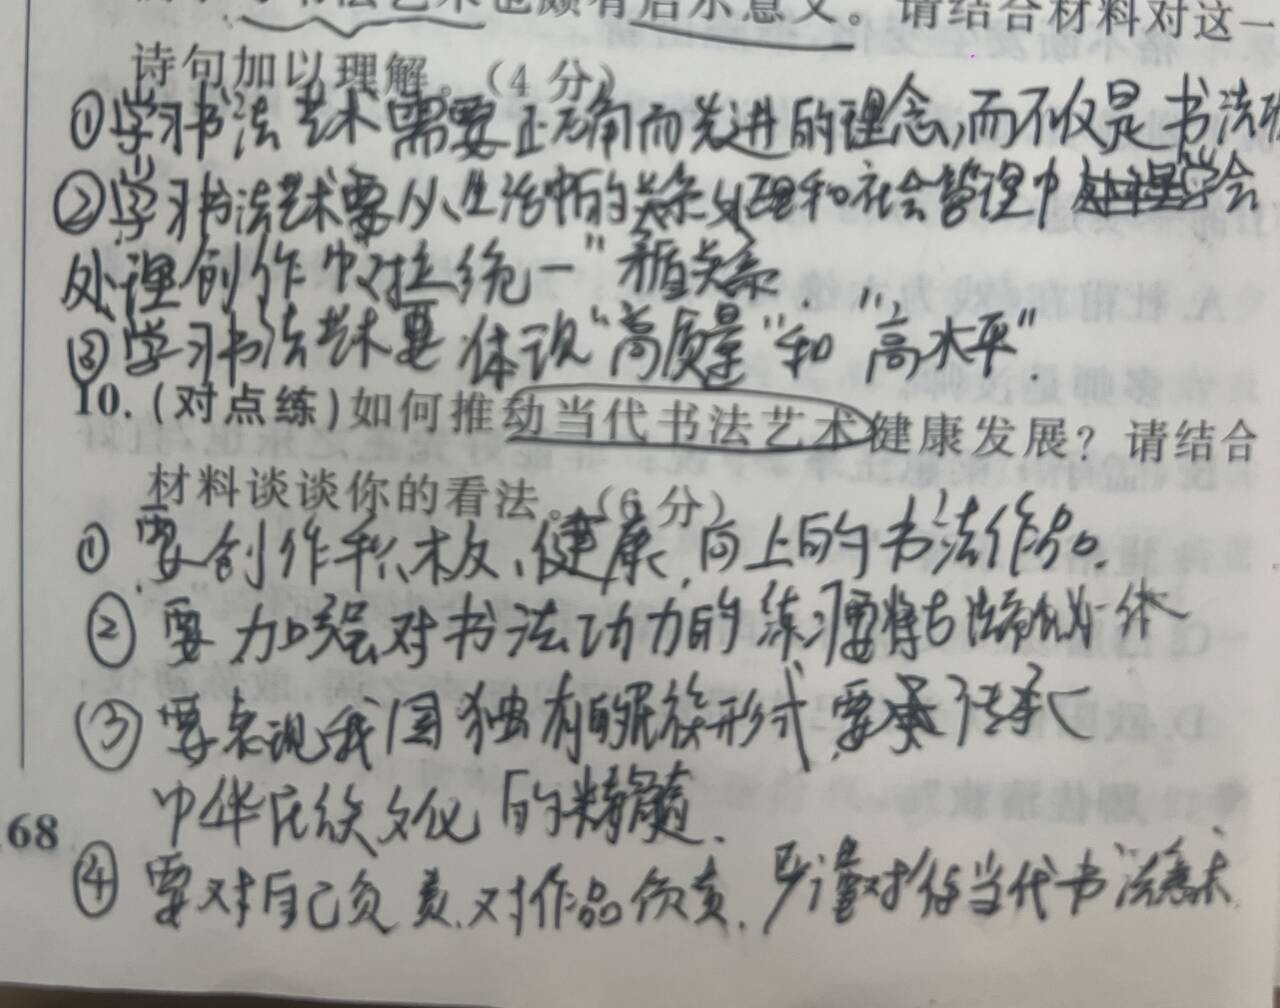 书法艺术也颇有启示意义。请结合材料对这一
诗句加以理解。(4分)
①学习书法艺术需要正确而先进的理念,而不仅是书法
②学习书法艺术要从生活中的关系处理和社会管理中处理学会
处理创作中对拉统一"矛盾关系.
③学习书法艺术要体现"高质量"和"高水平".
10.(对点练)如何推动当代书法艺术健康发展?请结合
材料谈谈你的看法。(6分)
①要创作积极、健康、向上的书法作品.
②要加强对书法功力的练习要将书法
③要表现我国独有的民族形式要传承
中华民族文化的精髓.
68
④要对自己负责.对作品负责.严谨对待当代书法艺术.